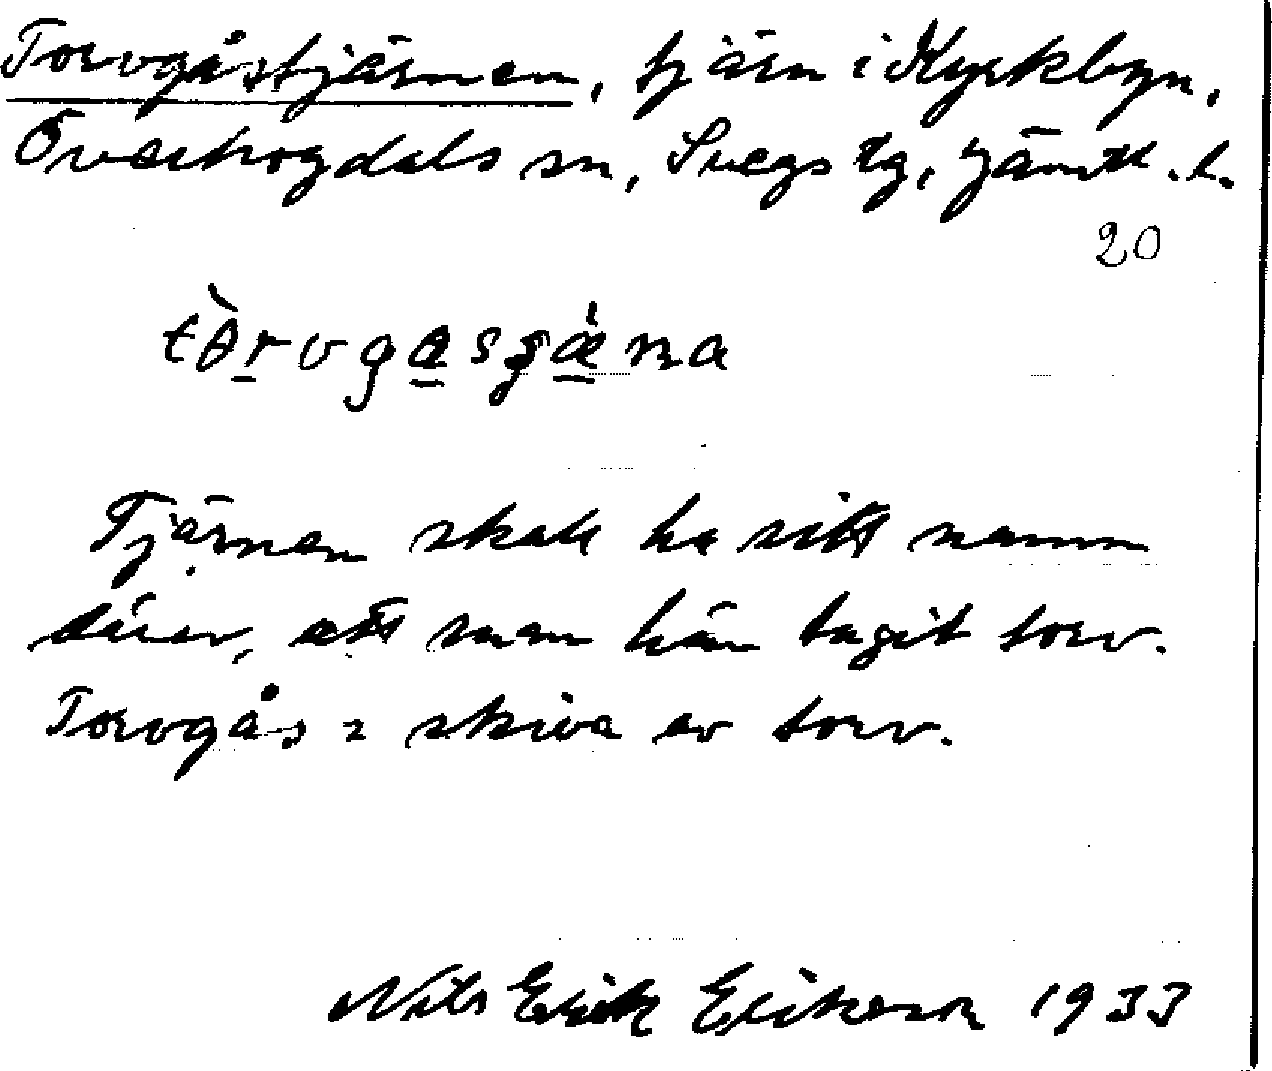 Torvgåstjärnen, tjärn i Kyrkbyn,
Överhogdals sn, Svegs tg, Jämtl. l.
20
Tjärnen skall ha sitt namn
därav, att man här tagit torv.
Torvgås = skiva av torv.
Nils Erik Erikson 1933